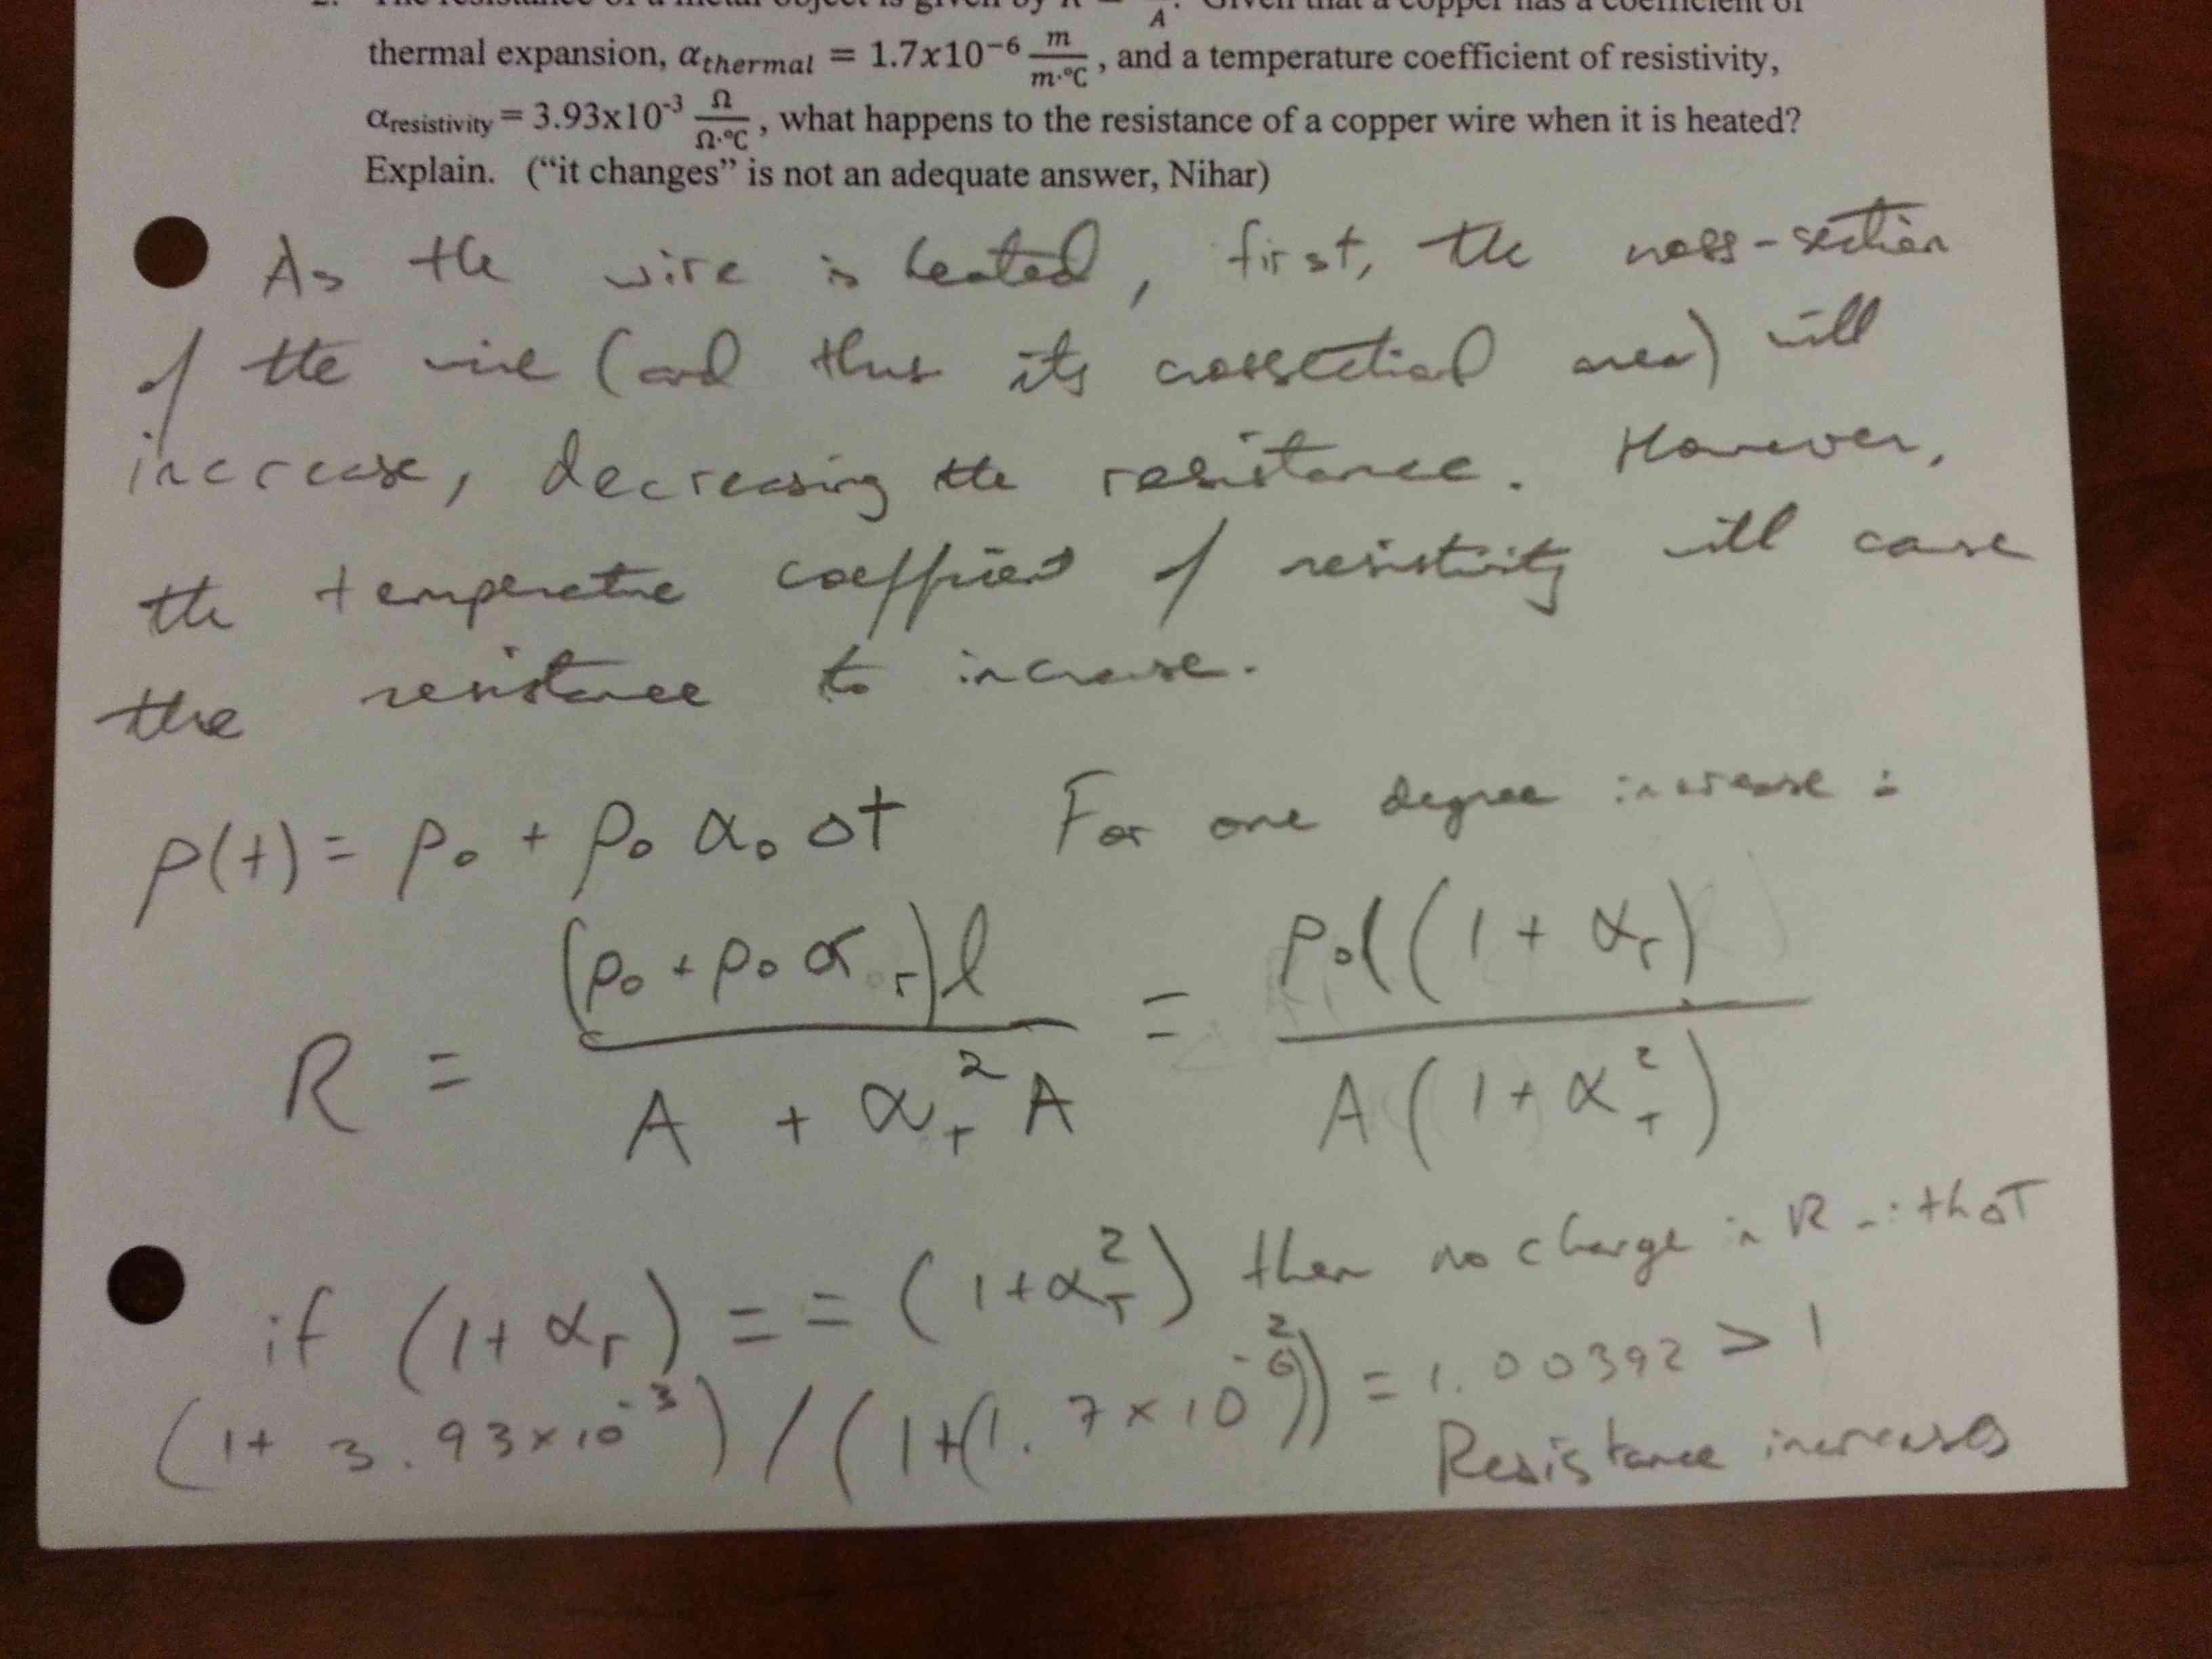 2. The resistance of a metal object is given by R = A. Given that a copper has a coefficient of
thermal expansion, α_thermal = 1.7x10⁻⁶ m/(m·°C), and a temperature coefficient of resistivity,
α_resistivity = 3.93x10⁻³ Ω/(Ω·°C), what happens to the resistance of a copper wire when it is heated?
Explain. (“it changes” is not an adequate answer, Nihar)
As the wire is heated, first, the cross-section
of the wire (and thus its crossectional area) will
increase, decreasing the resistance. However,
the temperature coefficient of resistivity will cause
the resistance to increase.
ρ(t) = ρ₀ + ρ₀ α₀ Δt For one degree increase:
R = (ρ₀ + ρ₀ α_r) l / (A + α_T² A) = ρ₀ l (1 + α_r) / (A (1 + α_T²))
if (1 + α_r) == (1 + α_T²) then no change in R with ΔT
(1 + 3.93 x 10⁻³) / (1 + (1.7 x 10⁻⁶)²) = 1.00392 > 1
Resistance increases